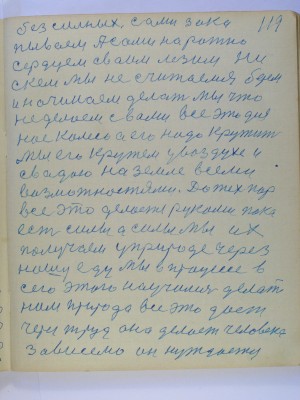 без сильних, сами зака 119
пываем А сами на ратно
сердцем своим лезим Ни
с кем мы не считаемся, едем
и начинаем делат мы что
не делаем с вами все это ди
ное колесо его надо крутит
мы его крутем у воздухе и
свадою на земле всеми
возможностями. До тех пор
все это делает руками пока
ест силы а силы мы их
получаем у природе через
нашу еду мы в процесе в
сего этого научились делат
нам природа все это дает
чериз труд она делает человека
зависемо он нуждаетц